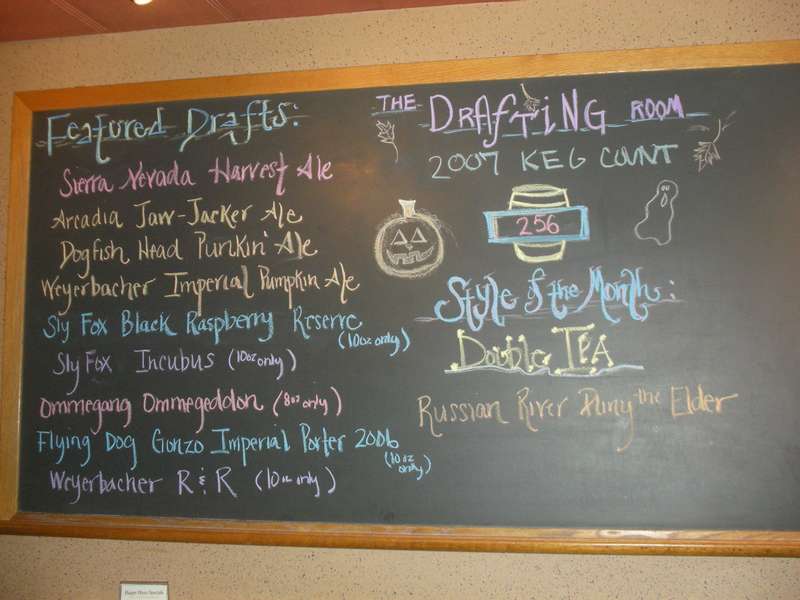 Featured Drafts:
Sierra Nevada Harvest Ale
Arcadia Jaw-Jacker Ale
Dogfish Head Punkin' Ale
Weyerbacher Imperial Pumpkin Ale
Sly Fox Black Raspberry Reserve
(10oz only)
Sly Fox Incubus (10oz only)
Ommegang Ommegeddon (8oz only)
Flying Dog Gonzo Imperial Porter 2006
(10oz only)
Weyerbacher R & R (10oz only)
THE DRAFTING ROOM
2007 KEG COUNT
256
Style of the Month:
Double IPA
Russian River Pliny the Elder
Happy Hour Specials